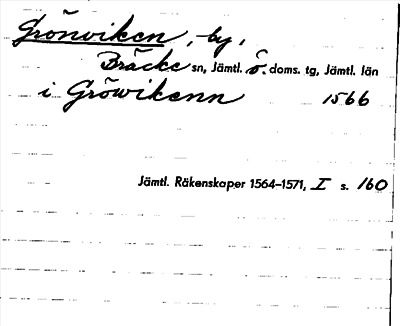 Grönviken, by,
Bräcke sn, Jämtl. ö. doms. tg, Jämtl. län
i Gröwikenn 1566
Jämtl. Räkenskaper 1564–1571, I s. 160